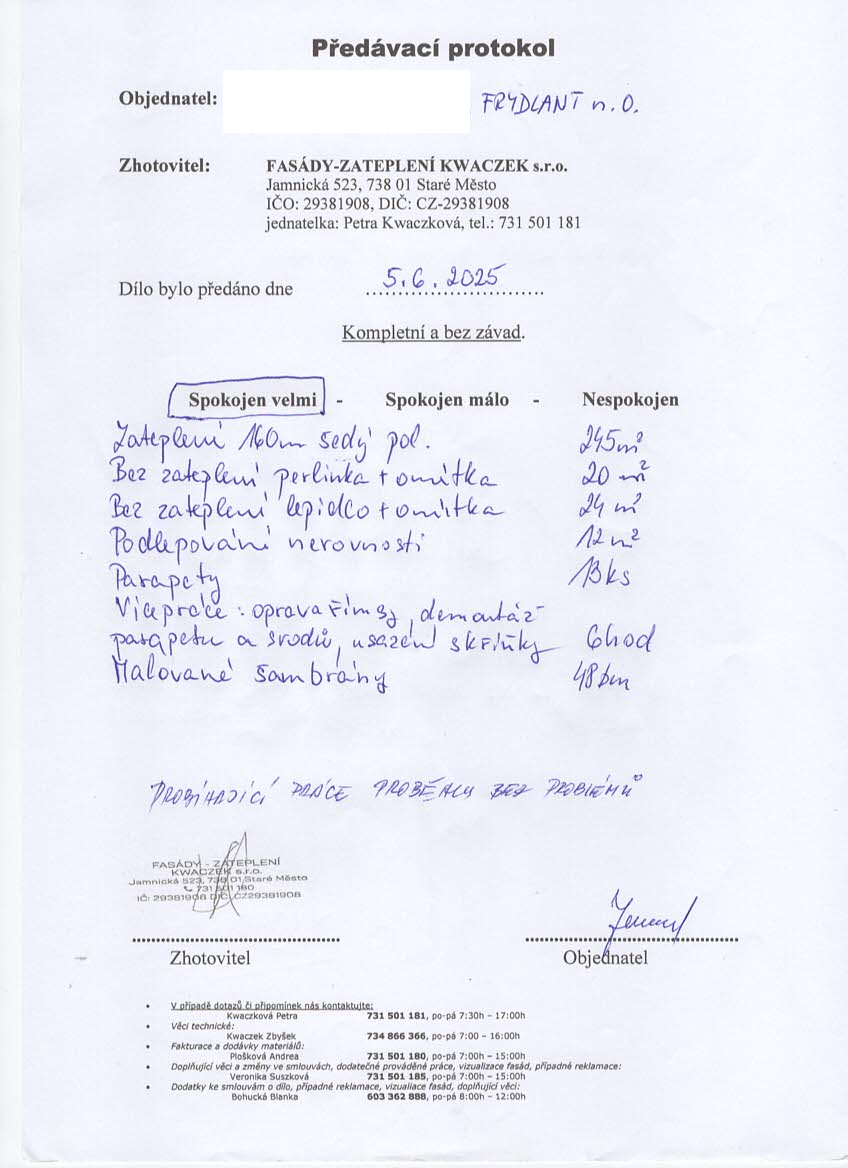 Předávací protokol
Objednatel: FRÝDLANT n. O.
Zhotovitel: FASÁDY-ZATEPLENÍ KWACZEK s.r.o.
Jamnická 523, 738 01 Staré Město
IČO: 29381908, DIČ: CZ-29381908
jednatelka: Petra Kwaczková, tel.: 731 501 181
Dílo bylo předáno dne 5.6.2025
Kompletní a bez závad.
Spokojen velmi - Spokojen málo - Nespokojen
Zateplení 160m šedý pol. 245m²
Bez zateplení perlinka + omítka 20 m²
Bez zateplení lepidlo + omítka 24 m²
Podlepování nerovností 12m²
Parapety 13ks
Vícepráce: oprava římsy, demontáž
parapetu a svodů, usazení skříňky 6hod
Malované šambrány 48bm
PROBÍHAJÍCÍ PRÁCE PROBĚHLY BEZ PROBLÉMŮ
FASÁDY - ZATEPLENÍ
KWACZEK s.r.o.
Jamnická 523, 738 01 Staré Město
731 501 180
IČ: 29381908 DIČ: CZ29381908
Zhotovitel Objednatel
• V případě dotazů či připomínek nás kontaktujte:
Kwaczková Petra 731 501 181, po-pá 7:30h – 17:00h
• Věci technické:
Kwaczek Zbyšek 734 866 366, po-pá 7:00 – 16:00h
• Fakturace a dodávky materiálů:
Plošková Andrea 731 501 180, po-pá 7:00h – 15:00h
• Doplňující věci a změny ve smlouvách, dodatečné prováděné práce, vizualizace fasád, případné reklamace:
Veronika Suszková 731 501 185, po-pá 7:00h – 15:00h
• Dodatky ke smlouvám o dílo, případné reklamace, vizualiace fasád, doplňující věci:
Bohucká Blanka 603 362 888, po-pá 8:00h – 12:00h